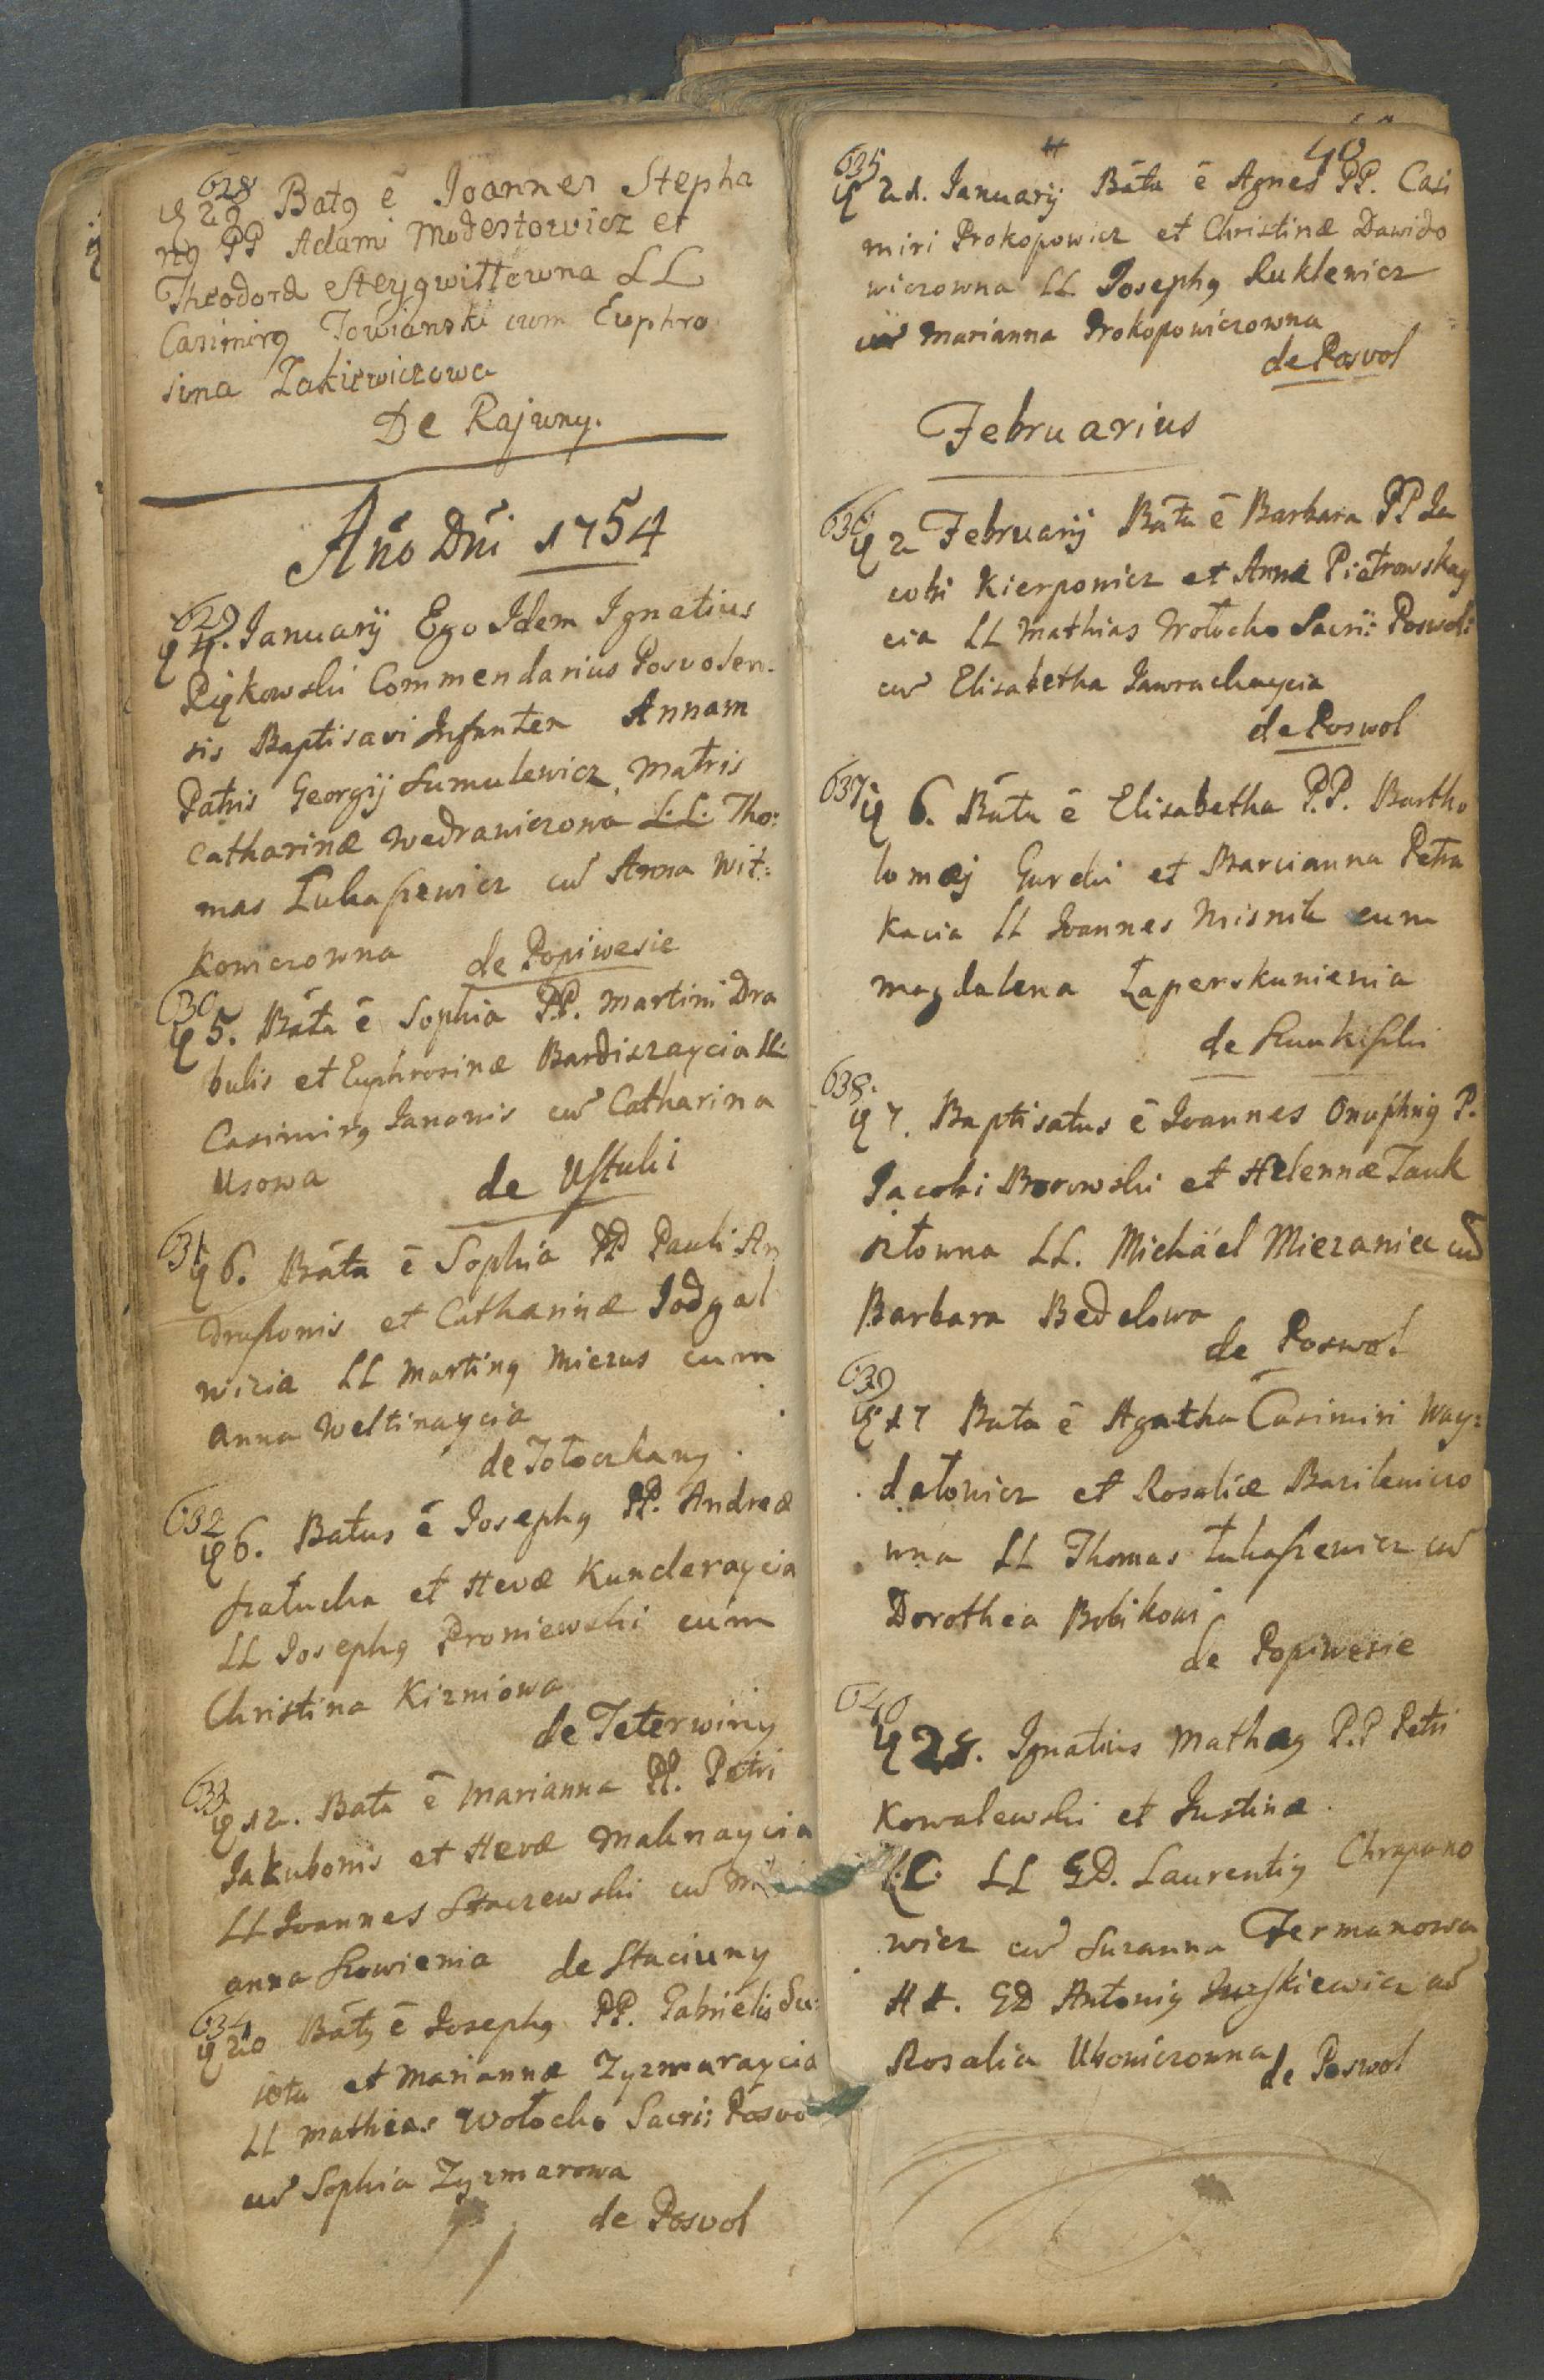 628
29 Bat9 ē Joannes Stepha
n9 PP Adami Modestowicz et
Theodora Steygwiłłowna LL
Casimir9 Towianski cum Euphro
sina Zakiewiczowa
De Rajuny.
Año Dñi 1754
629
4. Ianuarij Ego Idem Ignatius
Piękowski Commendarius Posvolen.
sis Baptisavi Infantem Annam
Patris Georgij Sumulewicz Matris
Catharinæ Wedrawiczowa L.L. Tho:
mas Łukaszewicz cu Anna Wit:
kowiczowna de Popiwesie
630
5. Bata ē Sophia PP. Martini Dra
bulis et Euphrosinæ Bardiszaycia LL
Casimir9 Janonis cu Catharina
Usowa de Ustuki
631
6. Bata ē Sophia PP Pauli An
druszonis et Catharinæ Jodgal
wizia LL Martin9 Miezus cum
Anna Weltinaycia
de Tołoczkany.
632
6. Batus ē Joseph9 PP. Andreæ
Szałucha et Hevæ Kunderaycia
LL Joseph9 Proniewski cum
Christina Kizniowa
de Teterwiny
633
12. Bata ē Marianna PP. Petri
Jakubonis et Hevæ Malinaycia
LL Joannes Staczewski cu
anna Szowienia de Staciuny
634
20 Bat9 ē Joseph9 PP. Gabrielis Su:
ieta et Mariannæ Zyzmaraycia
LL Mathias Wołocho Sacri: Posvo
cu Sophia Zyzmarowa
de Posvol
40
635
21. Ianuarij Bata ē Agnes PP. Casi
miri Prokopowicz et Christinæ Dawido
wiczowna LL Joseph9 Ruklewicz
cu Marianna Prokopowiczowna
de Posvol
Februarius
636
2 Februarij Bata ē Barbara PP Ia
cobi Kierpowicz et Annæ Pietrowskay
cia LL Mathias Wołocho Sacri: Poswol:
cu Elisabetha Jawrachaycia
de Poswol
637
6. Bata ē Elisabetha P.P. Bartho
lomæj Gurski et Marcianna Petra
kacia LL Joannes Misnik cum
Magdalena Łaperskunienia
de Kunkiszki
638.
7. Baptisatus ē Joannes Onuphri9 P.
Jacobi Borowski et Helennæ Tauk
sztowna LL. Michäel Miezaniec cu
Barbara Bedelowa
de Poswol
639
17 Bata ē Agatha Casimiri Way:
datowicz et Rosaliæ Bazilewiczo
wna LL Thomas Łukaszewicz cu
Dorothea Bobikowi
de Popiwesie
640
28. Ignatius Mathæ9 P.P Petri
Kowalewski et Justinæ.
L.C. LL GD. Laurenti9 Chrapano
wicz cu Suzanna Fermanowa
GD Antoni9 Juszkiewicz cu
Rosalia Ukowiczowna
de Poswol